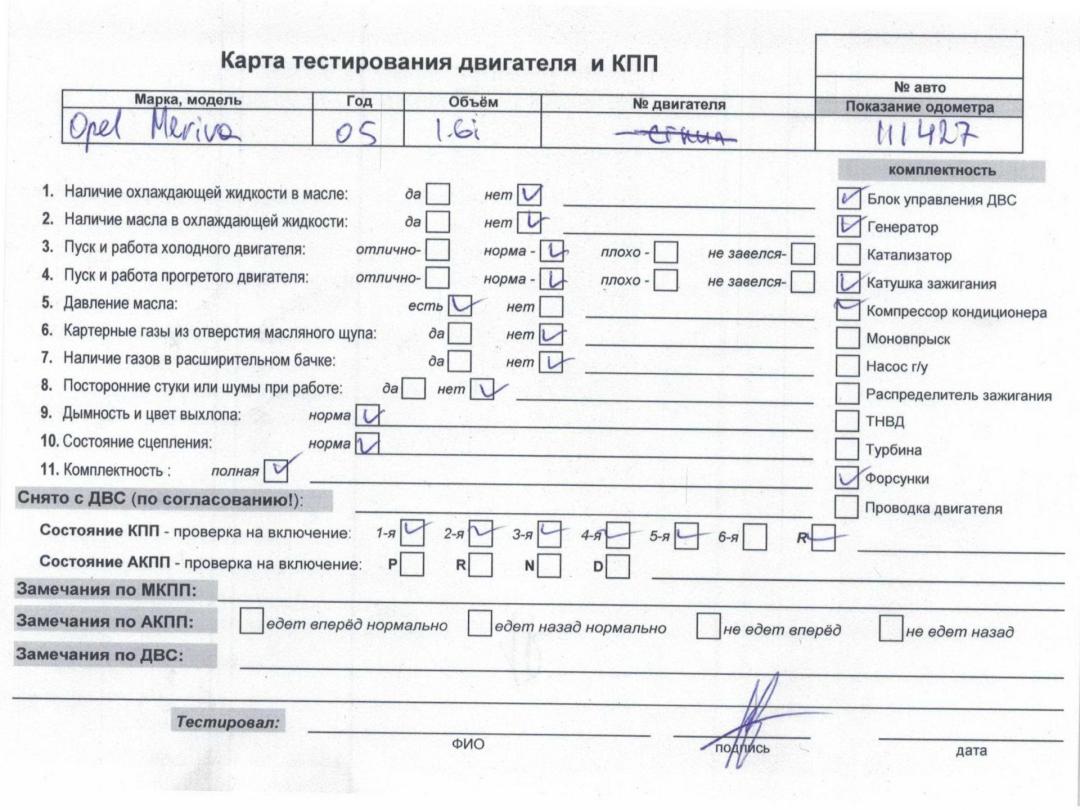 Карта тестирования двигателя и КПП
№ авто
Марка, модель Год Объём № двигателя Показание одометра
Opel Meriva 05 1.6i 111427
комплектность
1. Наличие охлаждающей жидкости в масле: да нет
Блок управления ДВС
2. Наличие масла в охлаждающей жидкости: да нет
Генератор
3. Пуск и работа холодного двигателя: отлично- норма - плохо - не завелся-
Катализатор
4. Пуск и работа прогретого двигателя: отлично- норма - плохо - не завелся-
Катушка зажигания
5. Давление масла: есть нет
Компрессор кондиционера
6. Картерные газы из отверстия масляного щупа: да нет
Моновпрыск
7. Наличие газов в расширительном бачке: да нет
Насос г/у
8. Посторонние стуки или шумы при работе: да нет
Распределитель зажигания
9. Дымность и цвет выхлопа: норма
ТНВД
10. Состояние сцепления: норма
Турбина
11. Комплектность : полная
Форсунки
Снято с ДВС (по согласованию!):
Проводка двигателя
Состояние КПП - проверка на включение: 1-я 2-я 3-я 4-я 5-я 6-я R
Состояние АКПП - проверка на включение: P R N D
Замечания по МКПП:
Замечания по АКПП: едет вперёд нормально едет назад нормально не едет вперёд не едет назад
Замечания по ДВС:
Тестировал:
ФИО подпись дата